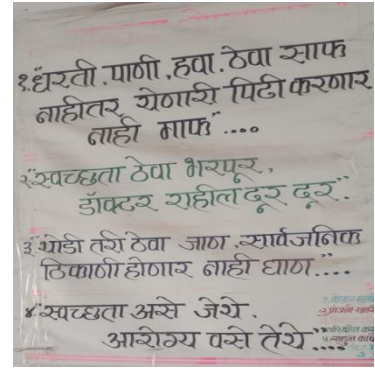 १"धरती.पाणी.हवा.ठेवा साफ
नाहीतर येणारी पिढी करणार
नाही माफ"....
२"स्वच्छता ठेवा भरपूर,
डॉक्टर राहील दूर दूर"..
३"थोडी तरी ठेवा जाण,सार्वजनिक
ठिकाणी होणार नाही घाण"....
४"स्वच्छता असे जेथे.
आरोग्य वसे तेथे"....